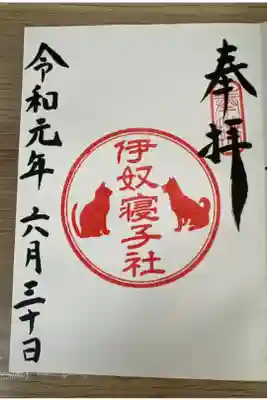 奉拝
伊奴寝子社
令和元年六月三十日